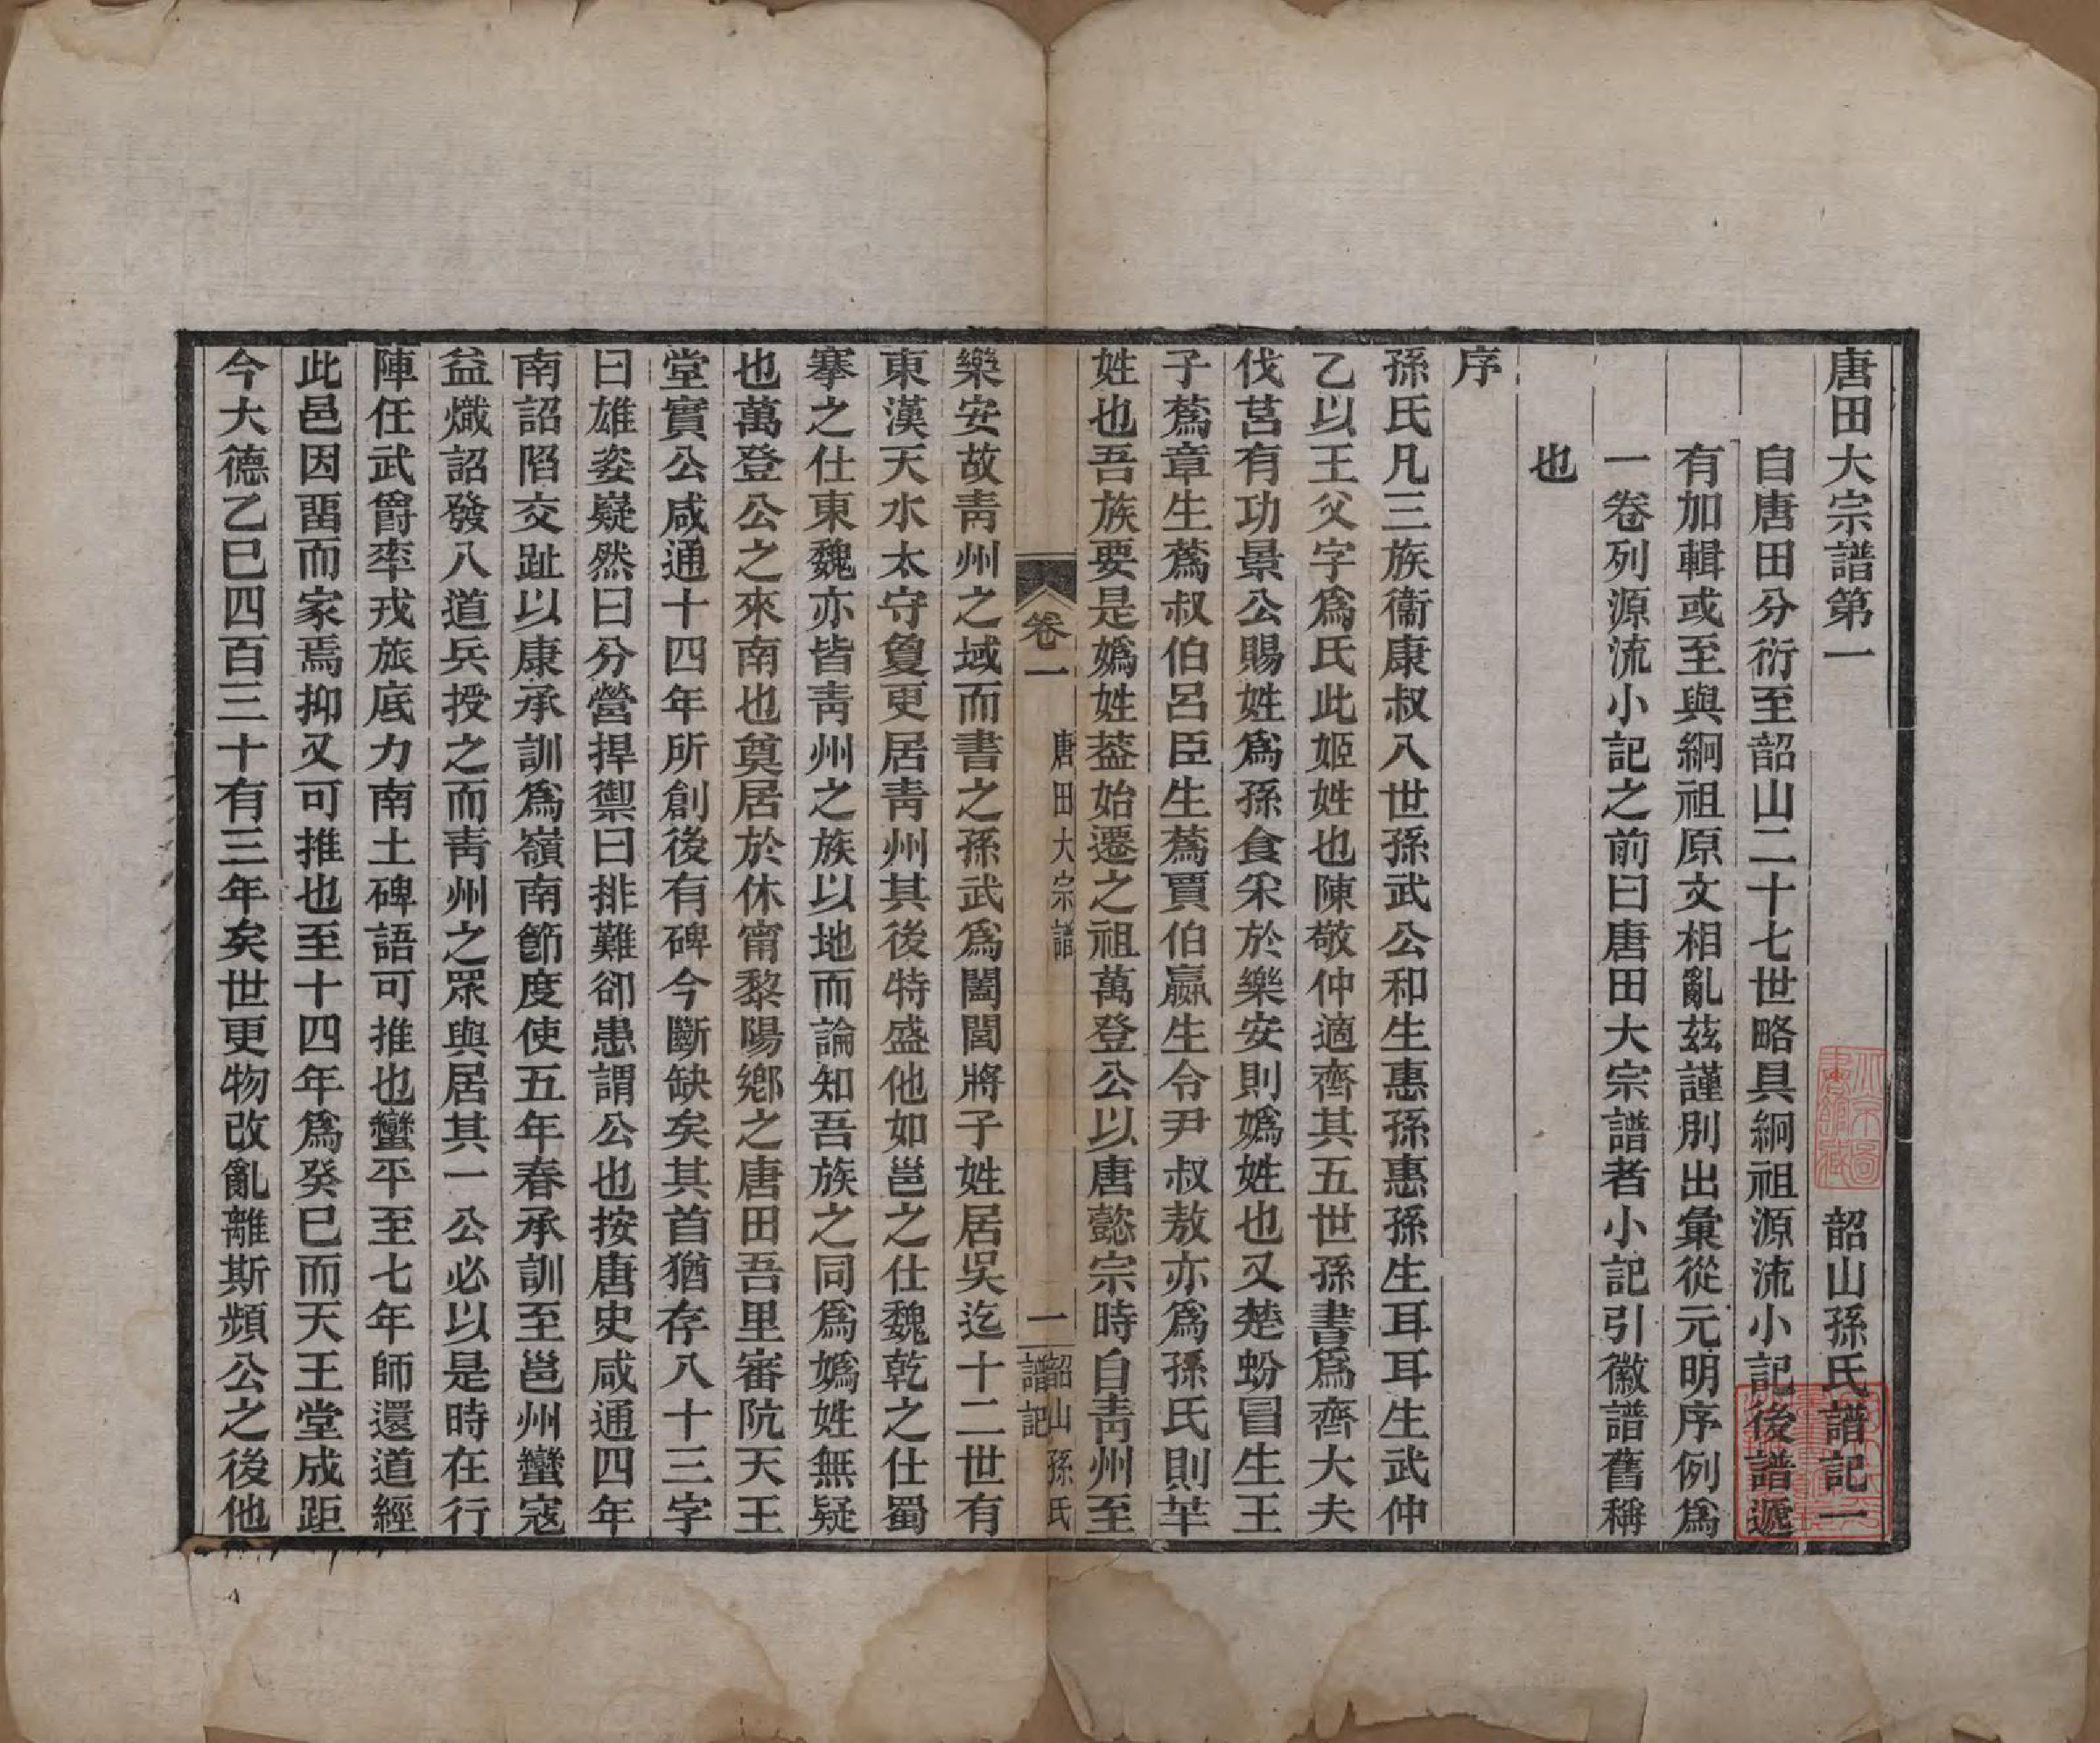 唐田大宗譜第一　韶山孫氏譜記一
自唐田分衍至韶山二十七世略具絅祖源流小記後譜遞
有加輯或至與絅祖原文相亂茲謹別出彙從元明序例爲
一卷列源流小記之前曰唐田大宗譜者小記引徽譜舊稱
也
序
孫氏凡三族衞康叔八世孫武公和生惠孫惠孫生耳耳生武仲
乙以王父字爲氏此姬姓也陳敬仲適齊其五世孫書爲齊大夫
伐莒有功景公賜姓爲孫食采於樂安則嬀姓也又楚蚡冒生王
子蔿章生蔿叔伯呂臣生蔿賈伯嬴生令尹叔敖亦爲孫氏則芈
姓也吾族要是嬀姓葢始遷之祖萬登公以唐懿宗時自靑州至
卷一
唐田大宗譜
一
韶山孫氏
譜記
樂安故靑州之域而書之孫武爲闔閭將子姓居吳迄十二世有
東漢天水太守敻更居靑州其後特盛他如邕之仕魏乾之仕蜀
搴之仕東魏亦皆靑州之族以地而論知吾族之同爲嬀姓無疑
也萬登公之來南也奠居於休甯黎陽鄕之唐田吾里審阬天王
堂實公咸通十四年所創後有碑今斷缺矣其首猶存八十三字
曰雄姿嶷然曰分營捍禦曰排難卻患謂公也按唐史咸通四年
南詔陷交趾以康承訓爲嶺南節度使五年春承訓至邕州蠻寇
益熾詔發八道兵授之而靑州之眾與居其一公必以是時在行
陣任武爵率戎旅底力南土碑語可推也蠻平至七年師還道經
此邑因畱而家焉抑又可推也至十四年爲癸巳而天王堂成距
今大德乙巳四百三十有三年矣世更物改亂離斯頻公之後他